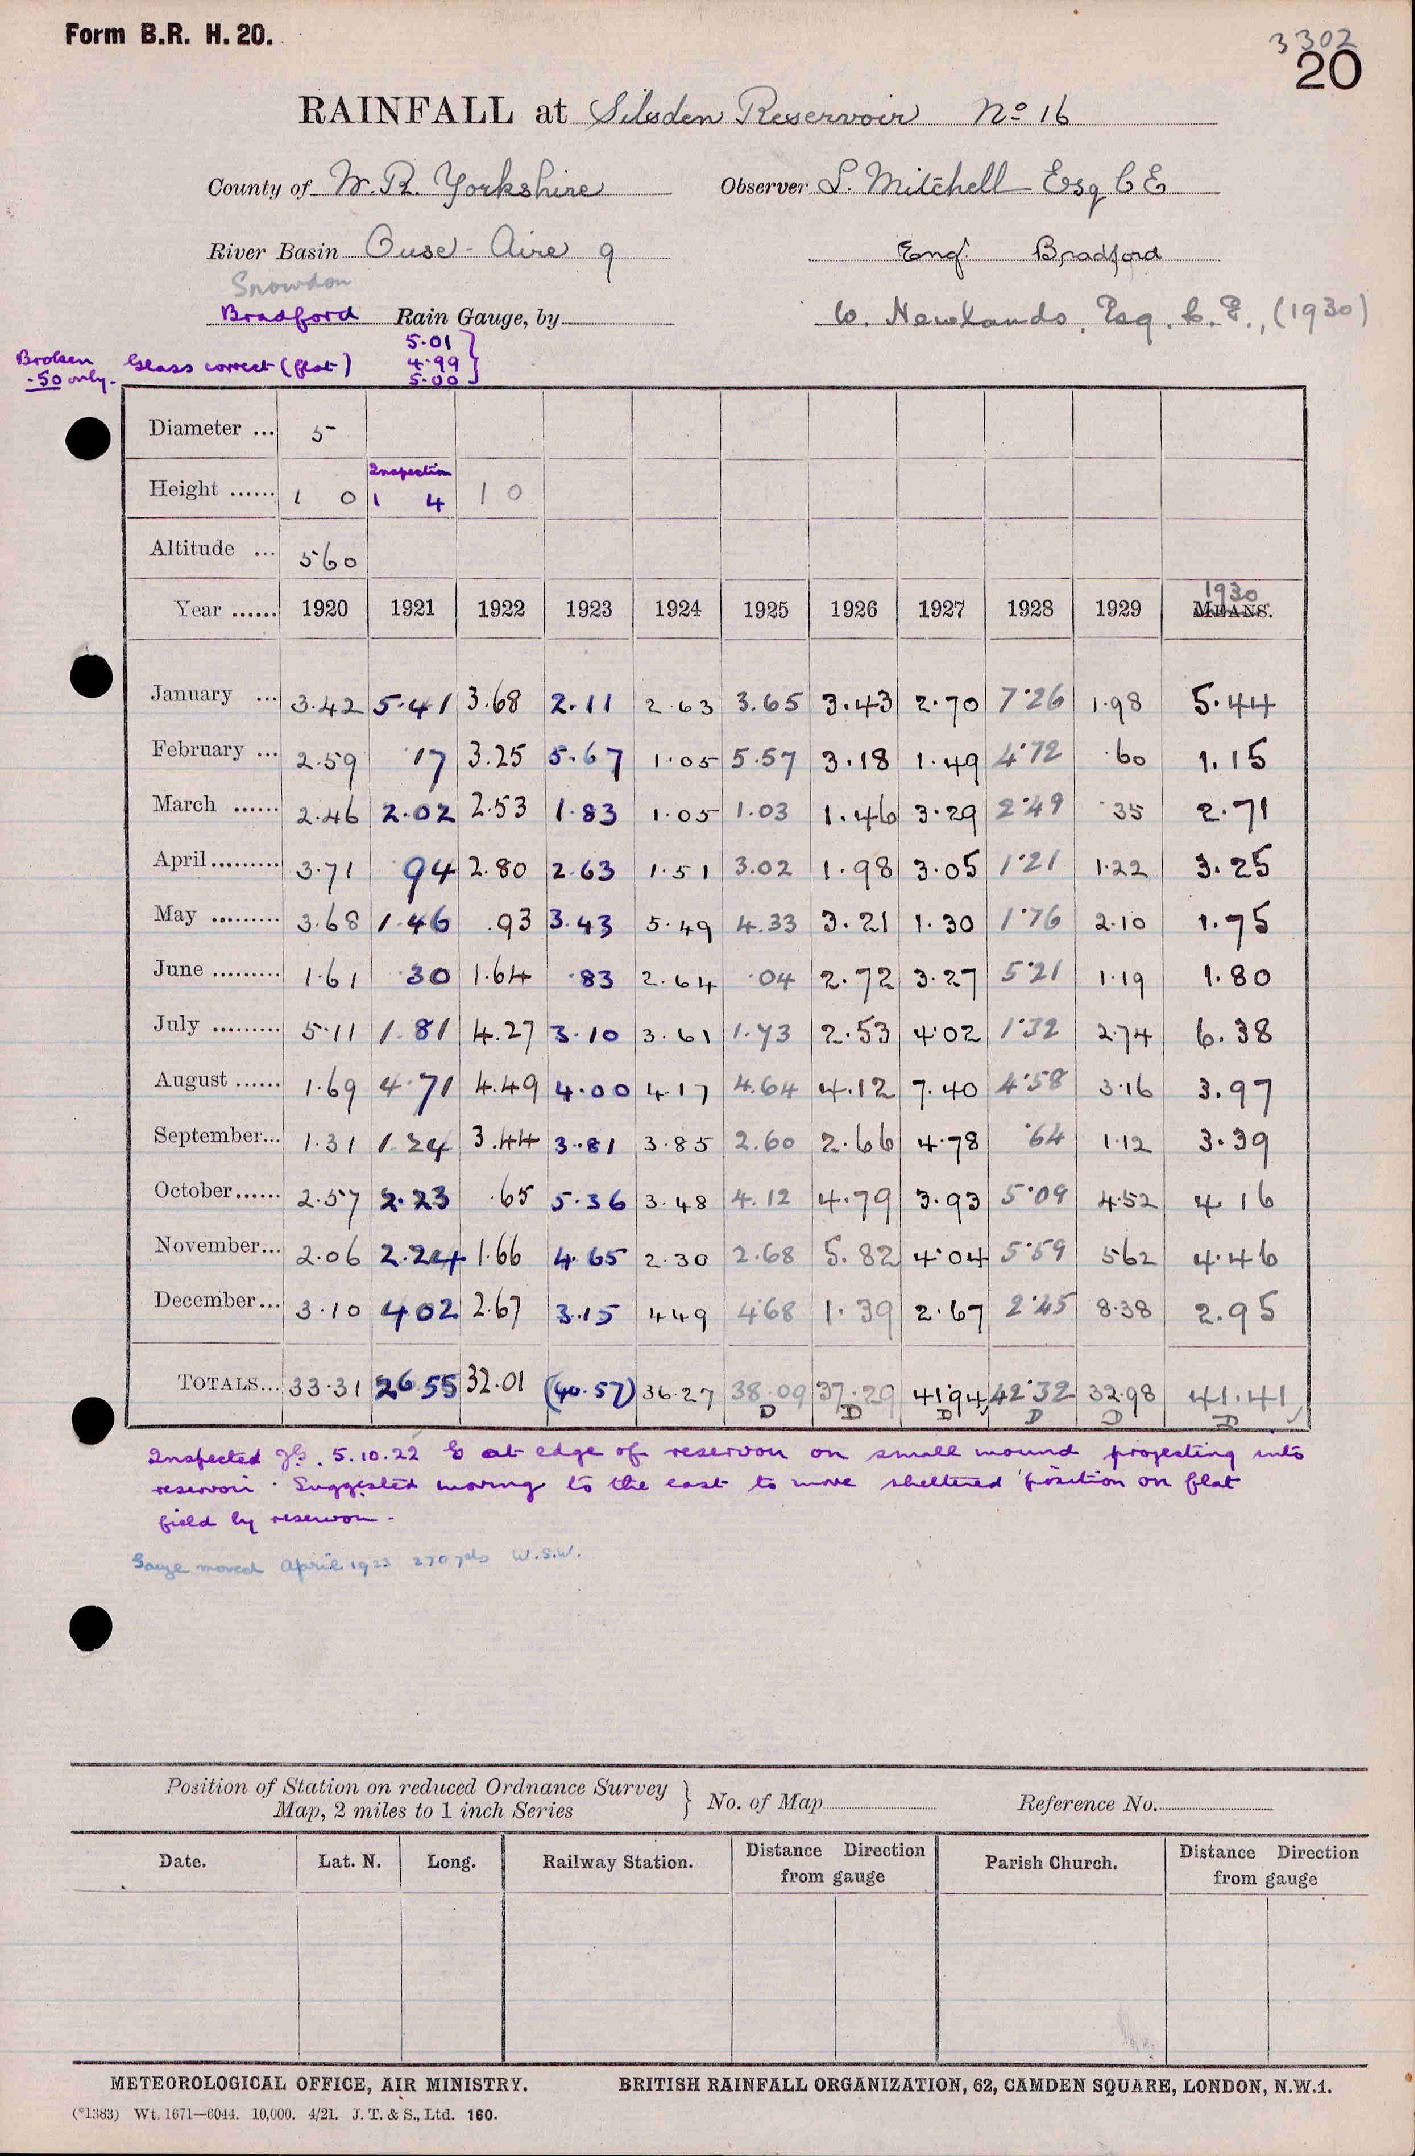 Form B.R. H. 20.
3302
20
RAINFALL at Silsden Reservoir No 16
County of W. R. Yorkshire Observer L. Mitchell Esq C E
River Basin Ouse - Aire 9 Engr Bradford
Snowdon
Bradford Rain Gauge, by W. Newlands, Esq. C. E., (1930)
Broken .50 only. Glass correct (flat) 5.01 4.99 5.00 }
Diameter ... 5
Inspection
Height ...... 1 0 1 4 1 0
Altitude ... 560
Year ...... 1920 1921 1922 1923 1924 1925 1926 1927 1928 1929 MEANS. 1930
January ... 3.42 5.41 3.68 2.11 2.63 3.65 3.43 2.70 7.26 1.98 5.44
February ... 2.59 .17 3.25 5.67 1.05 5.57 3.18 1.49 4.72 .60 1.15
March ...... 2.46 2.02 2.53 1.83 1.05 1.03 1.46 3.29 2.49 .35 2.71
April ......... 3.71 94 2.80 2.63 1.51 3.02 1.98 3.05 1.21 1.22 3.25
May ......... 3.68 1.46 .93 3.43 5.49 4.33 3.21 1.30 1.76 2.10 1.75
June ......... 1.61 .30 1.64 .83 2.64 .04 2.72 3.27 5.21 1.19 1.80
July ......... 5.11 1.81 4.27 3.10 3.61 1.73 2.53 4.02 1.32 2.74 6.38
August ...... 1.69 4.71 4.49 4.00 4.17 4.64 4.12 7.40 4.58 3.16 3.97
September... 1.31 1.24 3.44 3.81 3.85 2.60 2.66 4.78 .64 1.12 3.39
October...... 2.57 2.23 .65 5.36 3.48 4.12 4.79 3.93 5.09 4.52 4 16
November... 2.06 2.24 1.66 4.65 2.30 2.68 5.82 4.04 5.59 5.62 4.46
December... 3.10 4 02 2.67 3.15 4.49 4.68 1.39 2.67 2.45 8.38 2.95
TOTALS... 33.31 26.55 32.01 (40.57) 36.27 38.09 37.29 41.94 42.32 32.98 41.41
D D D D D D
Inspected 5.10.22 G at edge of reservoir on small mound projecting into
reservoir. Suggested moving to the east to more sheltered position on flat
field by reservoir.
Gauge moved April 1923 270 yds W.S.W.
Position of Station on reduced Ordnance Survey Map, 2 miles to 1 inch Series } No. of Map Reference No.
Date. Lat. N. Long. Railway Station. Distance Direction from gauge Parish Church. Distance Direction from gauge
METEOROLOGICAL OFFICE, AIR MINISTRY. BRITISH RAINFALL ORGANIZATION, 62, CAMDEN SQUARE, LONDON, N.W.1.
(*1383) Wt. 1671—6044. 10,000. 4/21. J. T. & S., Ltd. 160.